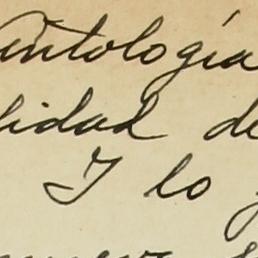 antología
lidad de
Y lo